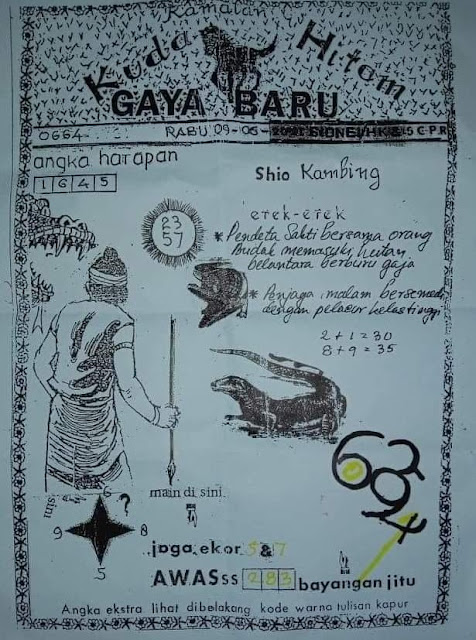 Kamalan
Kuda Hitam
GAYA BARU
0664 RABU 09-06- SIDNEY/HK S C P R
angka harapan
1 6 4 5
Shio Kambing
23
57
erek-erek
* Pendeta Sakti bersama orang
budak memasuki hutan
belantara berburu gaja
* Penjaga malam bersemedi
dengan pelacur kelas tinggi
2 + 1 = 30
8 + 9 = 35
63
94
main di sini
sini
6 ?
9 8
5
joga ekor 5 & 7
AWASss 2 8 3 bayangan jitu
Angka ekstra lihat dibelakang kode warna tulisan kapur